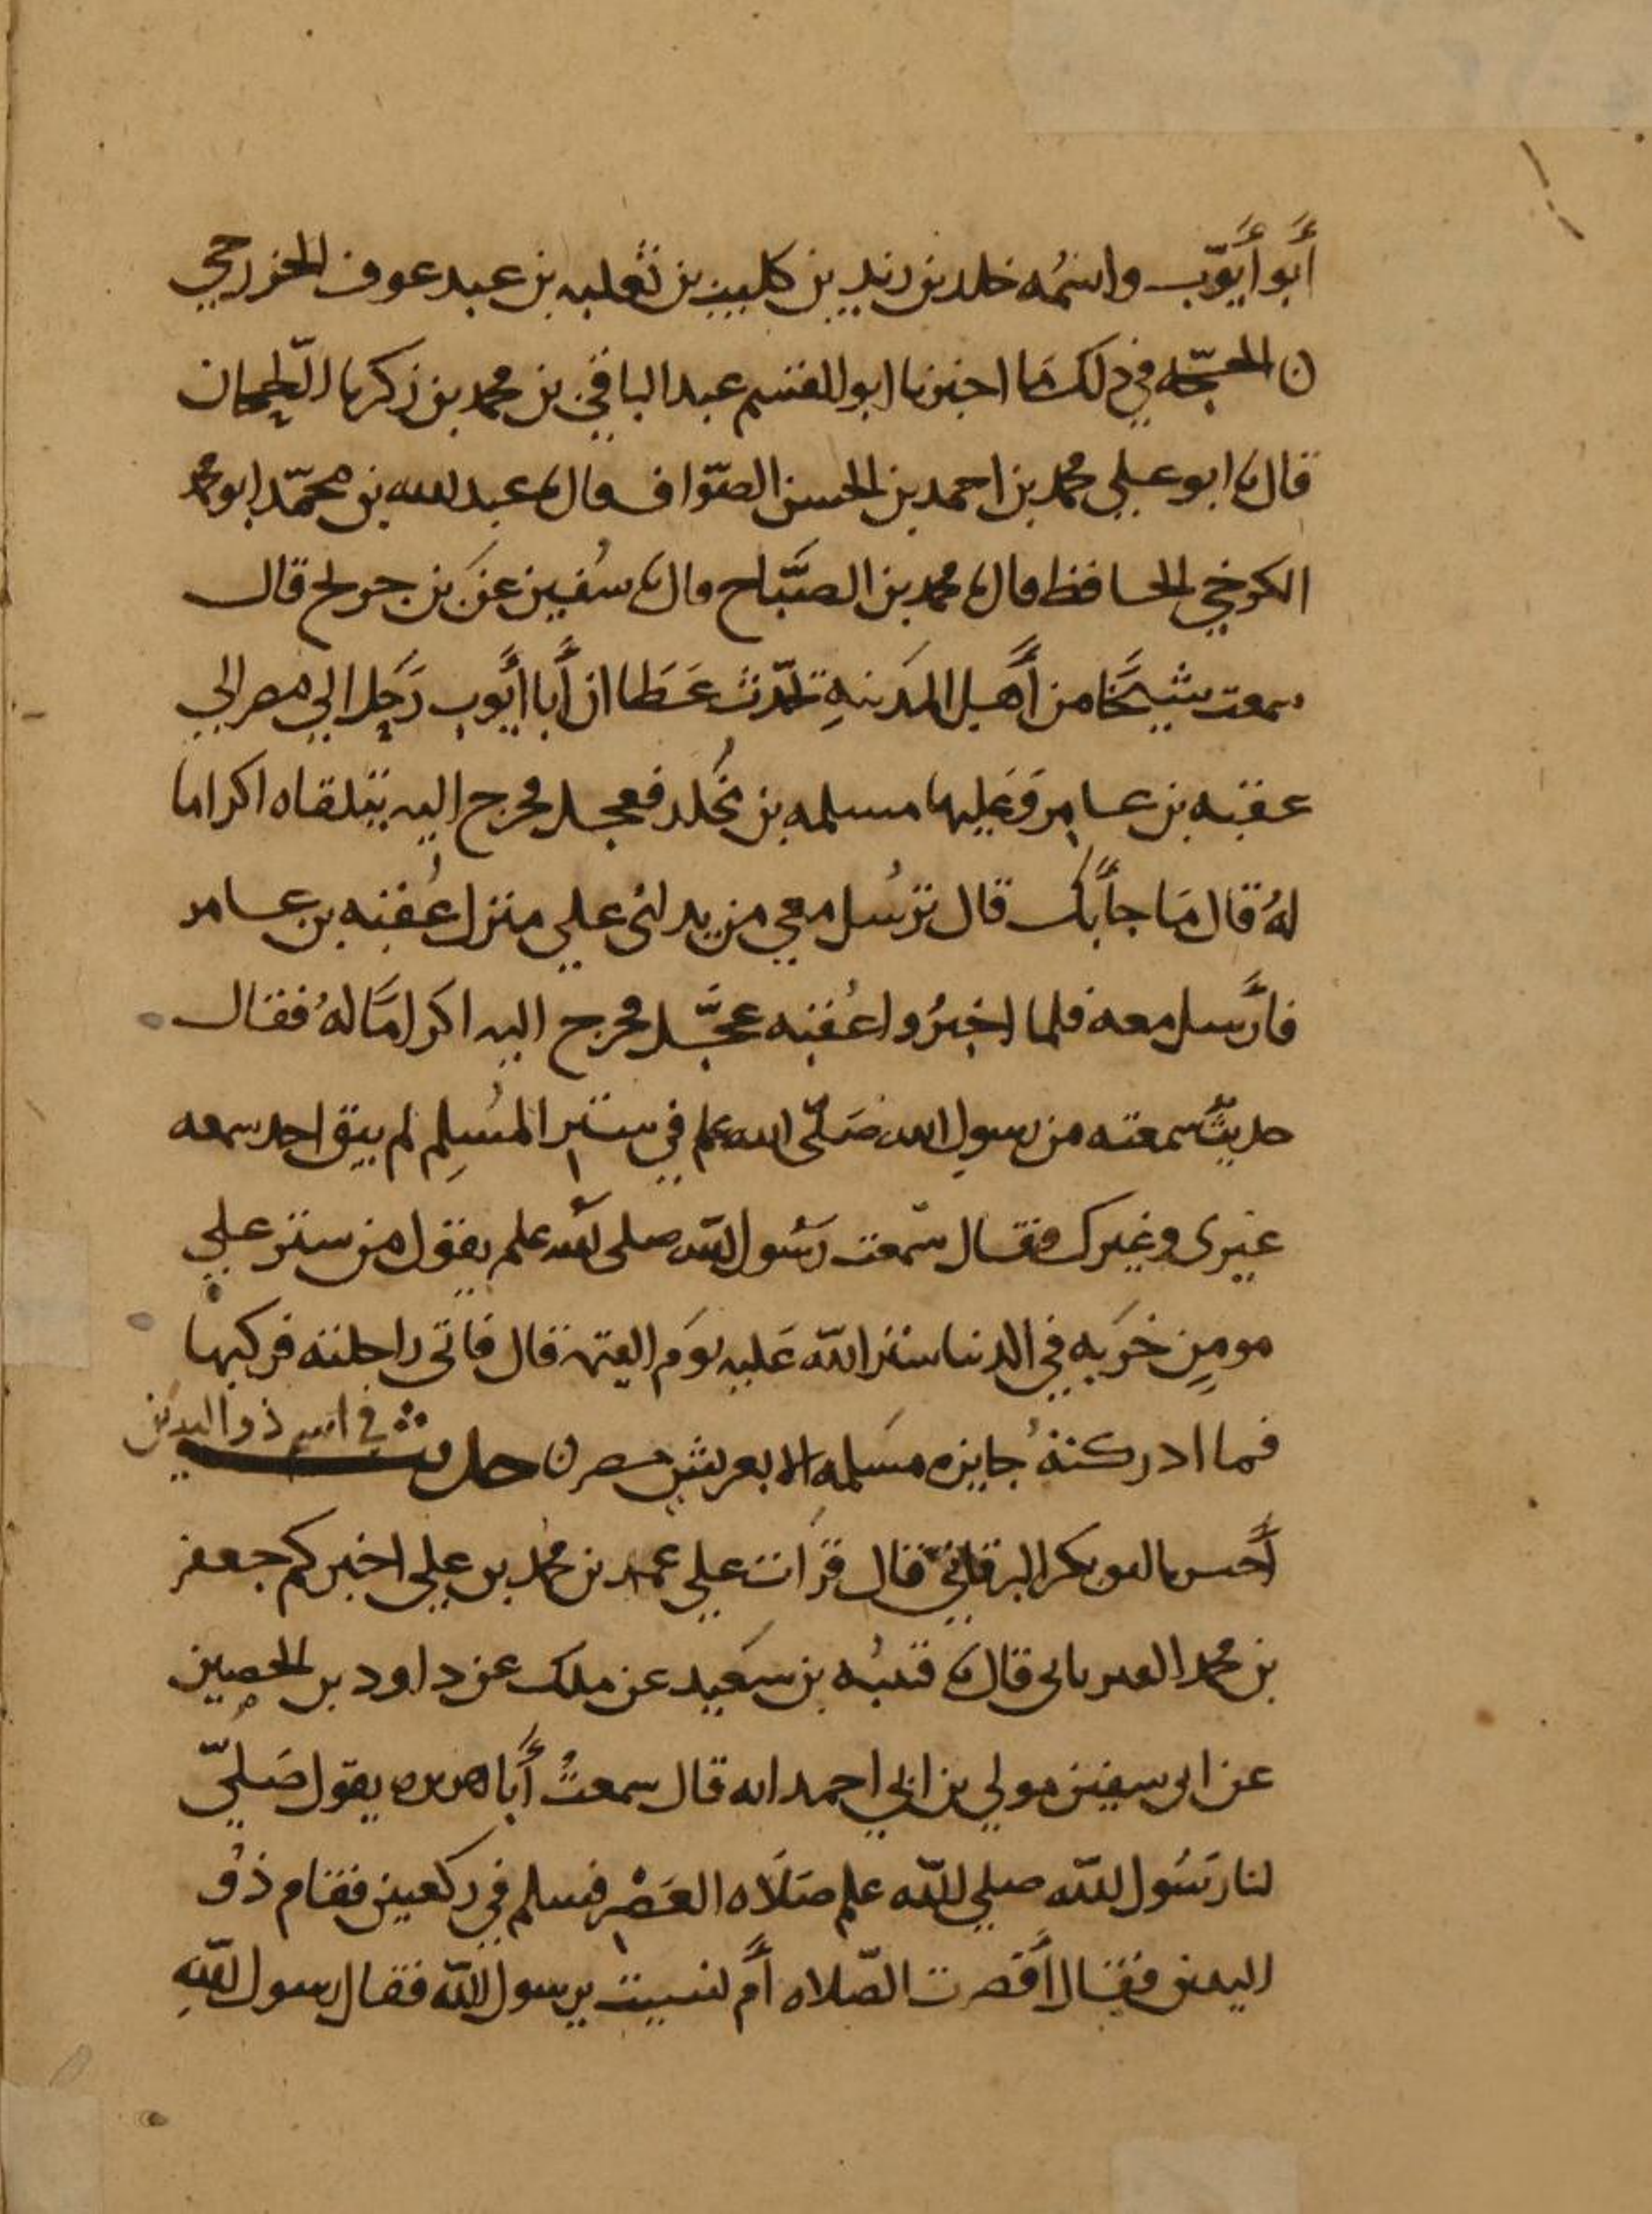 أبو أيّوب واسمُه خلد بن زيد بن كليب بن ثعلبه بن عبد عوف الخزرجي
ن الحجّه في ذلك مَا اخبرنا ابو القسم عبد الباقي بن محمد بن زكريا الطحان
قال نا ابو علي محمد بن احمد بن الحسن الصوّاف قال نا عبد الله بن محمّد ابو محمد
الكرخي الحافظ قال نا محمد بن الصبَّاح قال نا سُفين عن بن جريج قال
سمعت شيخًا من أهل المدينهِ تحدّث عَطا ان أبا أيُّوب رَحل الي مصر الي
عقبه بن عامر وَعليها مسلمه بن مُخلد فعجل فخرج اليه يتلقاه اكراما
لهُ قال مَا جأ بك قال ترسُل معي من يدلني علي منزل عُقبه بن عامر
فأرسل معه فلما اخبرُوا عُقبه عجَّل فخرج اليه اكرامًا لهُ فقال
حديثٌ سمعته من رسول الله صَلّى الله علم في ستر المُسلِم لم يبق احد سمعه
غيرى وغيرك فقال سَمعت رَسُول الله صلى الله علم يقول من ستر علي
مومِنٍ خزيه في الدنيا ستر الله عَليه يوم القيمه قال فاتى راحلته فركبها
فما ادركتهُ جايزه مسَلمه الا بعريش مصر ن حديث في اسم ذو اليدين
أخبرنا ابو بكر البرقاني قال قرات علي عمر بن محمد بن علي اخبركم جعفر
بن محمد الفريابى قال نا قتيبُه بن سَعيد عن ملك عن داود بن الحصين
عن ابى سفين مولي بن ابي احمد انه قال سمعتُ أبا هريره يقول صَليّ
لنا رَسُول الله صلي الله علم صَلَاه العَصْر فسلم في ركعتين فقام ذو
اليدين فقال أقصرت الصّلاه أم نسيت يرسول الله فقال رسول اللهِ